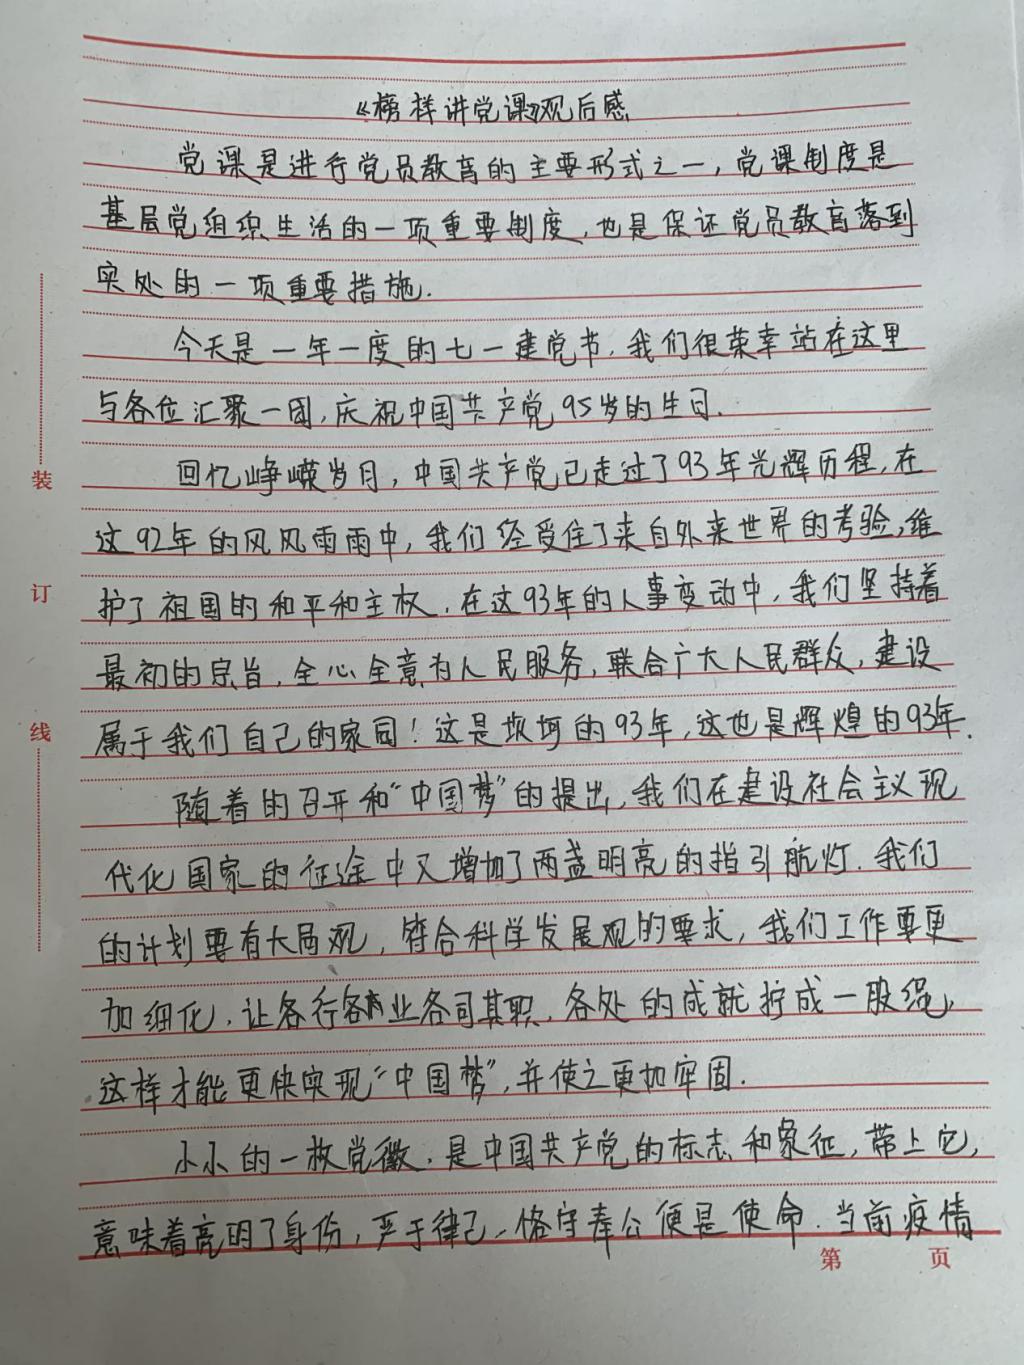 《榜样讲党课》观后感
党课是进行党员教育的主要形式之一，党课制度是
基层党组织生活的一项重要制度，也是保证党员教育落到
实处的一项重要措施.
今天是一年一度的七一建党节，我们很荣幸站在这里
与各位汇聚一团，庆祝中国共产党95岁的生日.
回忆峥嵘岁月，中国共产党已走过了93年光辉历程，在
这92年的风风雨雨中，我们经受住了来自外来世界的考验，维
护了祖国的和平和主权，在这93年的人事变动中，我们坚持着
最初的宗旨，全心全意为人民服务，联合广大人民群众，建设
属于我们自己的家园！这是坎坷的93年，这也是辉煌的93年.
随着的召开和“中国梦”的提出，我们在建设社会主义现
代化国家的征途中又增加了两盏明亮的指引航灯.我们
的计划要有大局观，符合科学发展观的要求，我们工作要更
加细化，让各行各业各司其职，各处的成就拧成一股绳，
这样才能更快实现“中国梦”，并使之更加牢固.
小小的一枚党徽，是中国共产党的标志和象征，带上它，
意味着亮明了身份，严于律己、恪守奉公便是使命.当前疫情
装
订
线
第 页